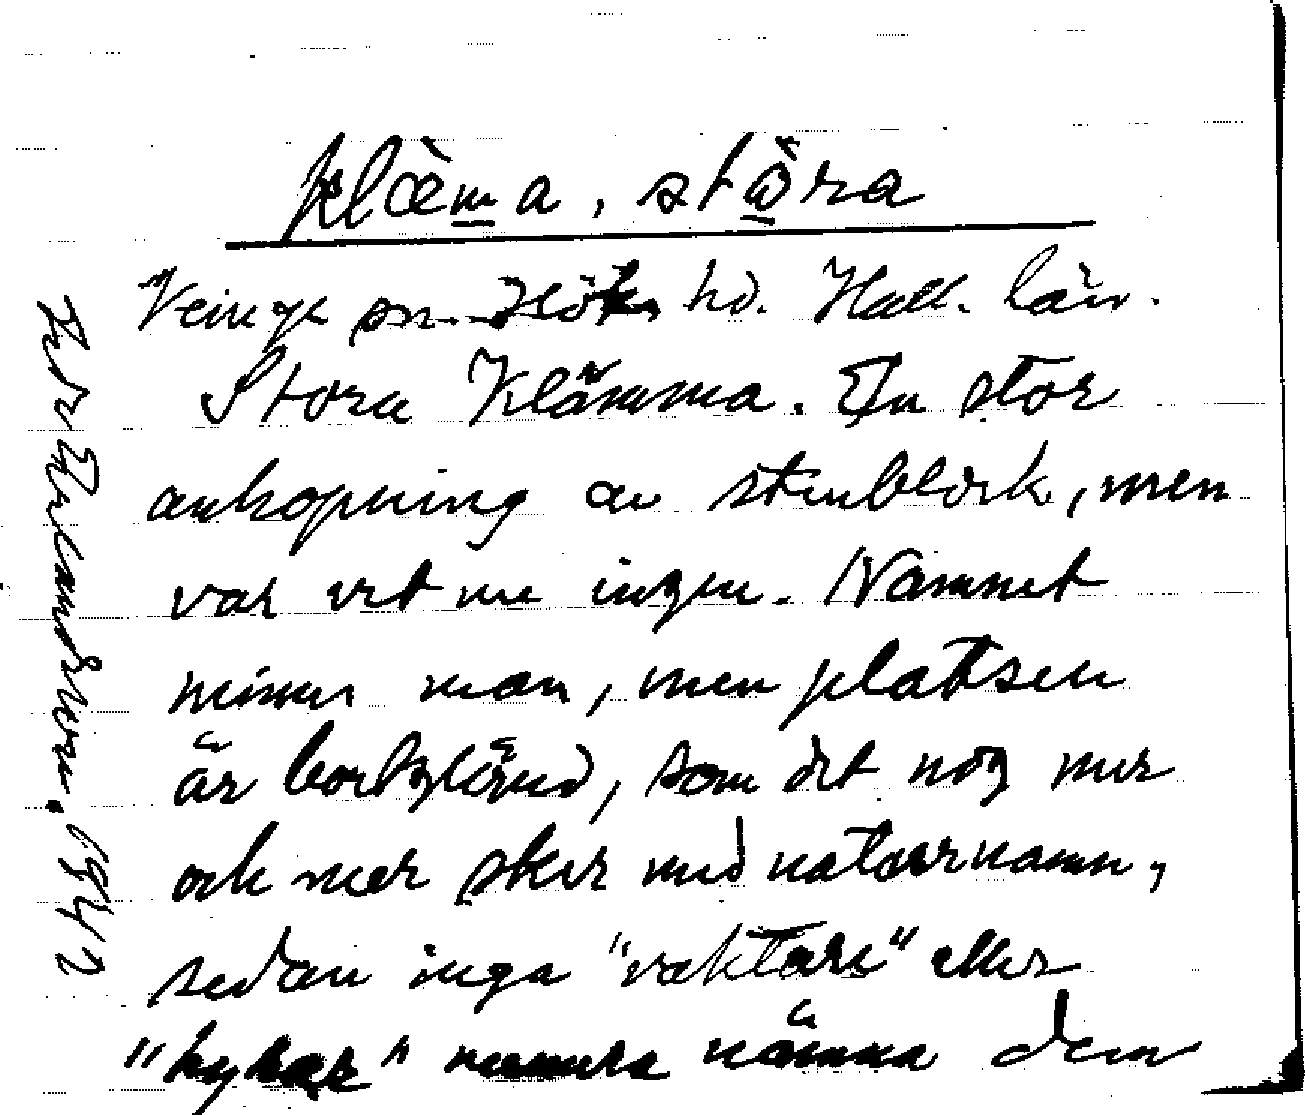 klæ̀m̲a, stö̲ra
Veinge sn. Höks hd. Hall. län.
Stora Klämma. En stor
anhopning av stenblock, men
var vet nu ingen. Namnet
minns man, men platsen
är bortglömd, som det nog mer
och mer sker med naturnamn,
sedan inga "vaktare" eller
"hyrar" numera nämna dem
1942